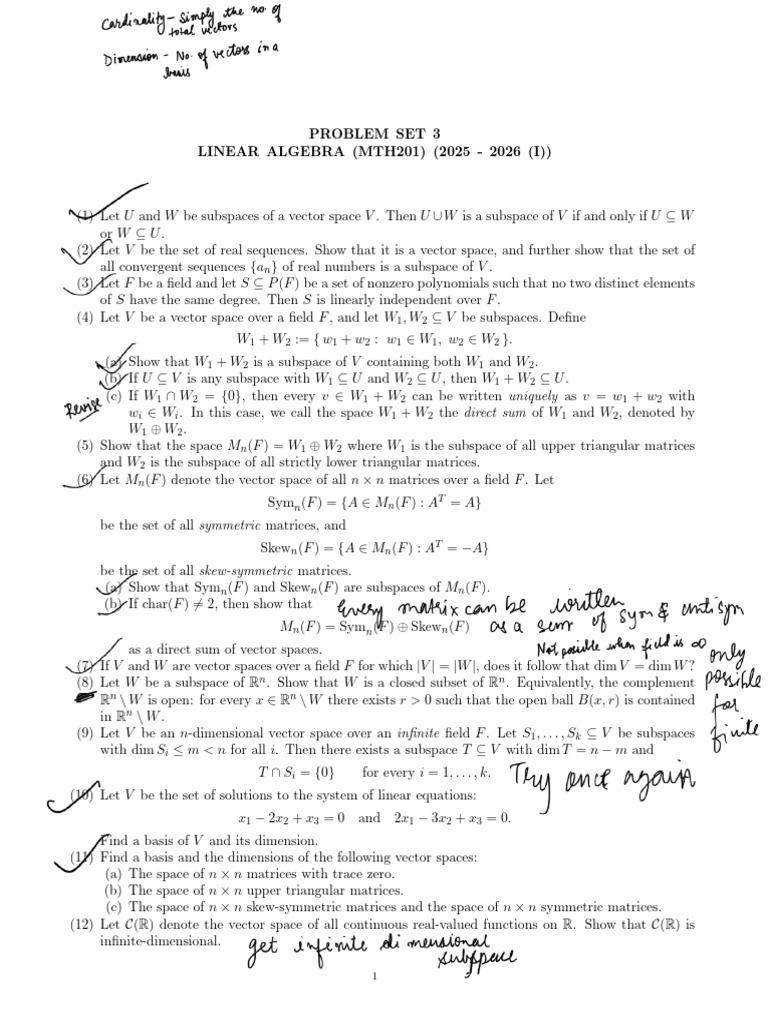 Cardinality - Simply the no. of
total vectors
Dimension - No. of vectors in a
basis
PROBLEM SET 3
LINEAR ALGEBRA (MTH201) (2025 - 2026 (I))
(1) Let U and W be subspaces of a vector space V. Then U ∪ W is a subspace of V if and only if U ⊆ W
or W ⊆ U.
(2) Let V be the set of real sequences. Show that it is a vector space, and further show that the set of
all convergent sequences {aₙ} of real numbers is a subspace of V.
(3) Let F be a field and let S ⊆ P(F) be a set of nonzero polynomials such that no two distinct elements
of S have the same degree. Then S is linearly independent over F.
(4) Let V be a vector space over a field F, and let W₁, W₂ ⊆ V be subspaces. Define
W₁ + W₂ := { w₁ + w₂ : w₁ ∈ W₁, w₂ ∈ W₂ }.
(a) Show that W₁ + W₂ is a subspace of V containing both W₁ and W₂.
(b) If U ⊆ V is any subspace with W₁ ⊆ U and W₂ ⊆ U, then W₁ + W₂ ⊆ U.
Revise (c) If W₁ ∩ W₂ = {0}, then every v ∈ W₁ + W₂ can be written uniquely as v = w₁ + w₂ with
wᵢ ∈ Wᵢ. In this case, we call the space W₁ + W₂ the direct sum of W₁ and W₂, denoted by
W₁ ⊕ W₂.
(5) Show that the space Mₙ(F) = W₁ ⊕ W₂ where W₁ is the subspace of all upper triangular matrices
and W₂ is the subspace of all strictly lower triangular matrices.
(6) Let Mₙ(F) denote the vector space of all n × n matrices over a field F. Let
Symₙ(F) = {A ∈ Mₙ(F) : Aᵀ = A}
be the set of all symmetric matrices, and
Skewₙ(F) = {A ∈ Mₙ(F) : Aᵀ = −A}
be the set of all skew-symmetric matrices.
(a) Show that Symₙ(F) and Skewₙ(F) are subspaces of Mₙ(F).
(b) If char(F) ≠ 2, then show that
Every matrix can be written
Mₙ(F) = Symₙ(F) ⊕ Skewₙ(F)
as a sum of sym & antisym
as a direct sum of vector spaces.
Not possible when field is ∞
only
possible
for
finite
(7) If V and W are vector spaces over a field F for which |V| = |W|, does it follow that dim V = dim W?
(8) Let W be a subspace of ℝⁿ. Show that W is a closed subset of ℝⁿ. Equivalently, the complement
ℝⁿ \ W is open: for every x ∈ ℝⁿ \ W there exists r > 0 such that the open ball B(x, r) is contained
in ℝⁿ \ W.
(9) Let V be an n-dimensional vector space over an infinite field F. Let S₁, . . . , Sₖ ⊆ V be subspaces
with dim Sᵢ ≤ m < n for all i. Then there exists a subspace T ⊆ V with dim T = n − m and
T ∩ Sᵢ = {0} for every i = 1, . . . , k.
Try once again
(10) Let V be the set of solutions to the system of linear equations:
x₁ − 2x₂ + x₃ = 0 and 2x₁ − 3x₂ + x₃ = 0.
Find a basis of V and its dimension.
(11) Find a basis and the dimensions of the following vector spaces:
(a) The space of n × n matrices with trace zero.
(b) The space of n × n upper triangular matrices.
(c) The space of n × n skew-symmetric matrices and the space of n × n symmetric matrices.
(12) Let C(ℝ) denote the vector space of all continuous real-valued functions on ℝ. Show that C(ℝ) is
infinite-dimensional.
get infinite dimensional
subspace
1